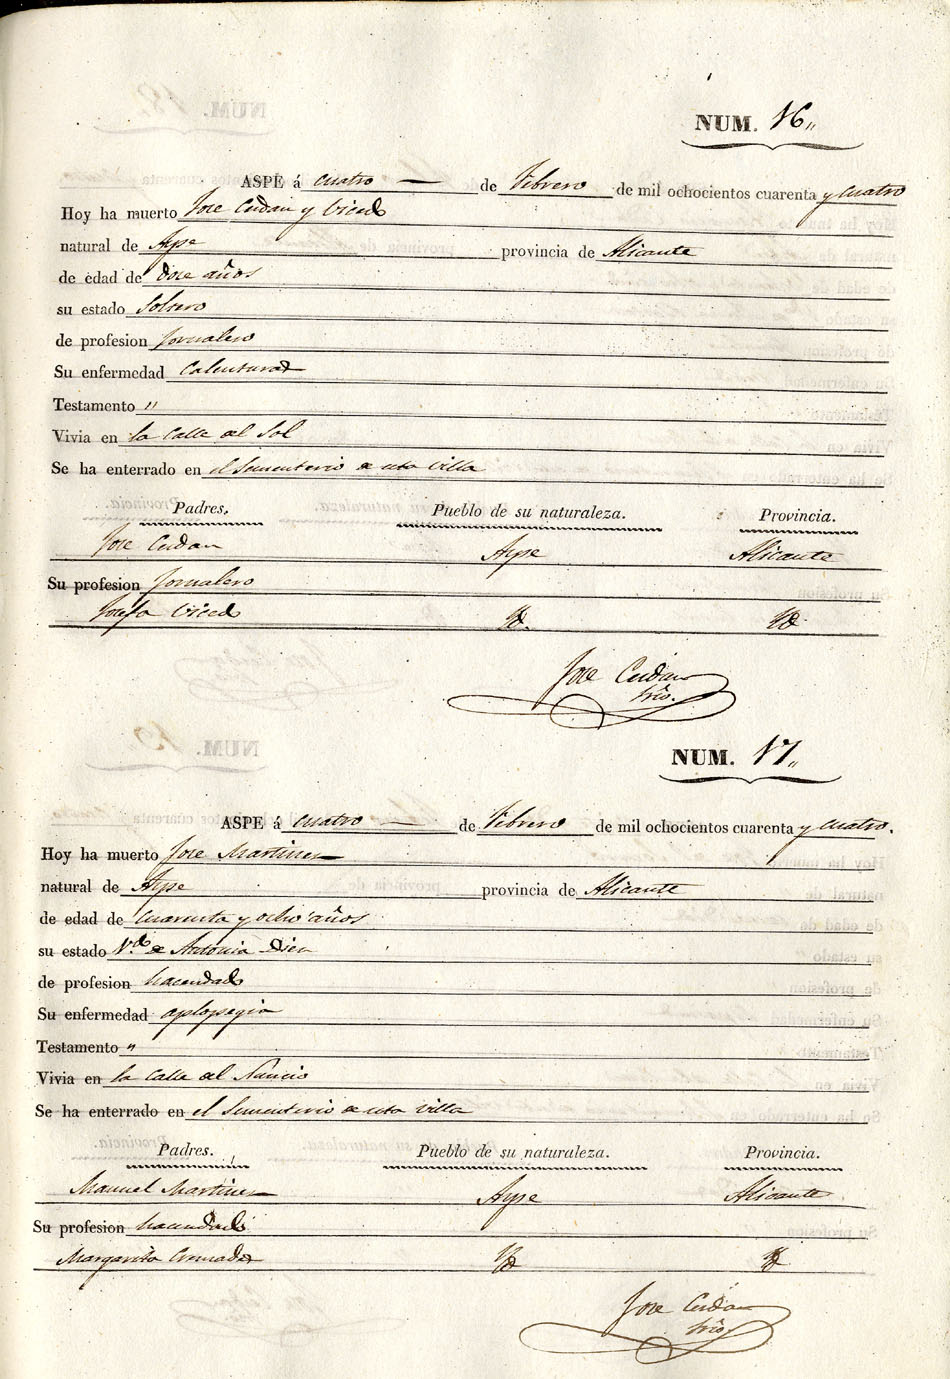 NUM. 16,,
ASPE á cuatro — de Febrero de mil ochocientos cuarenta y cuatro
Hoy ha muerto Jose Cerdan y Vicedo
natural de Aspe provincia de Alicante
de edad de dose años
su estado Soltero
de profesion Jornalero
Su enfermedad Calenturas
Testamento "
Vivia en la Calle del Sol
Se ha enterrado en el Sementerio de esta Villa
Padres. Pueblo de su naturaleza. Provincia.
Jose Cerdan Aspe Alicante
Su profesion Jornalero
Josefa Vicedo Yd. Yd
Jose Cerdan
Srio.
NUM. 17,,
ASPE á cuatro — de Febrero de mil ochocientos cuarenta y cuatro.
Hoy ha muerto Jose Martinez
natural de Aspe provincia de Alicante
de edad de cuarenta y ocho años
su estado V.do de Antonia Dies
de profesion hacendado
Su enfermedad aplopegia
Testamento "
Vivia en la Calle del Nuncio
Se ha enterrado en el Sementerio de esta Villa
Padres. Pueblo de su naturaleza. Provincia.
Manuel Martinez Aspe Alicante
Su profesion hacendado
Margarita Cremades Yd Yd
Jose Cerdan
Srio